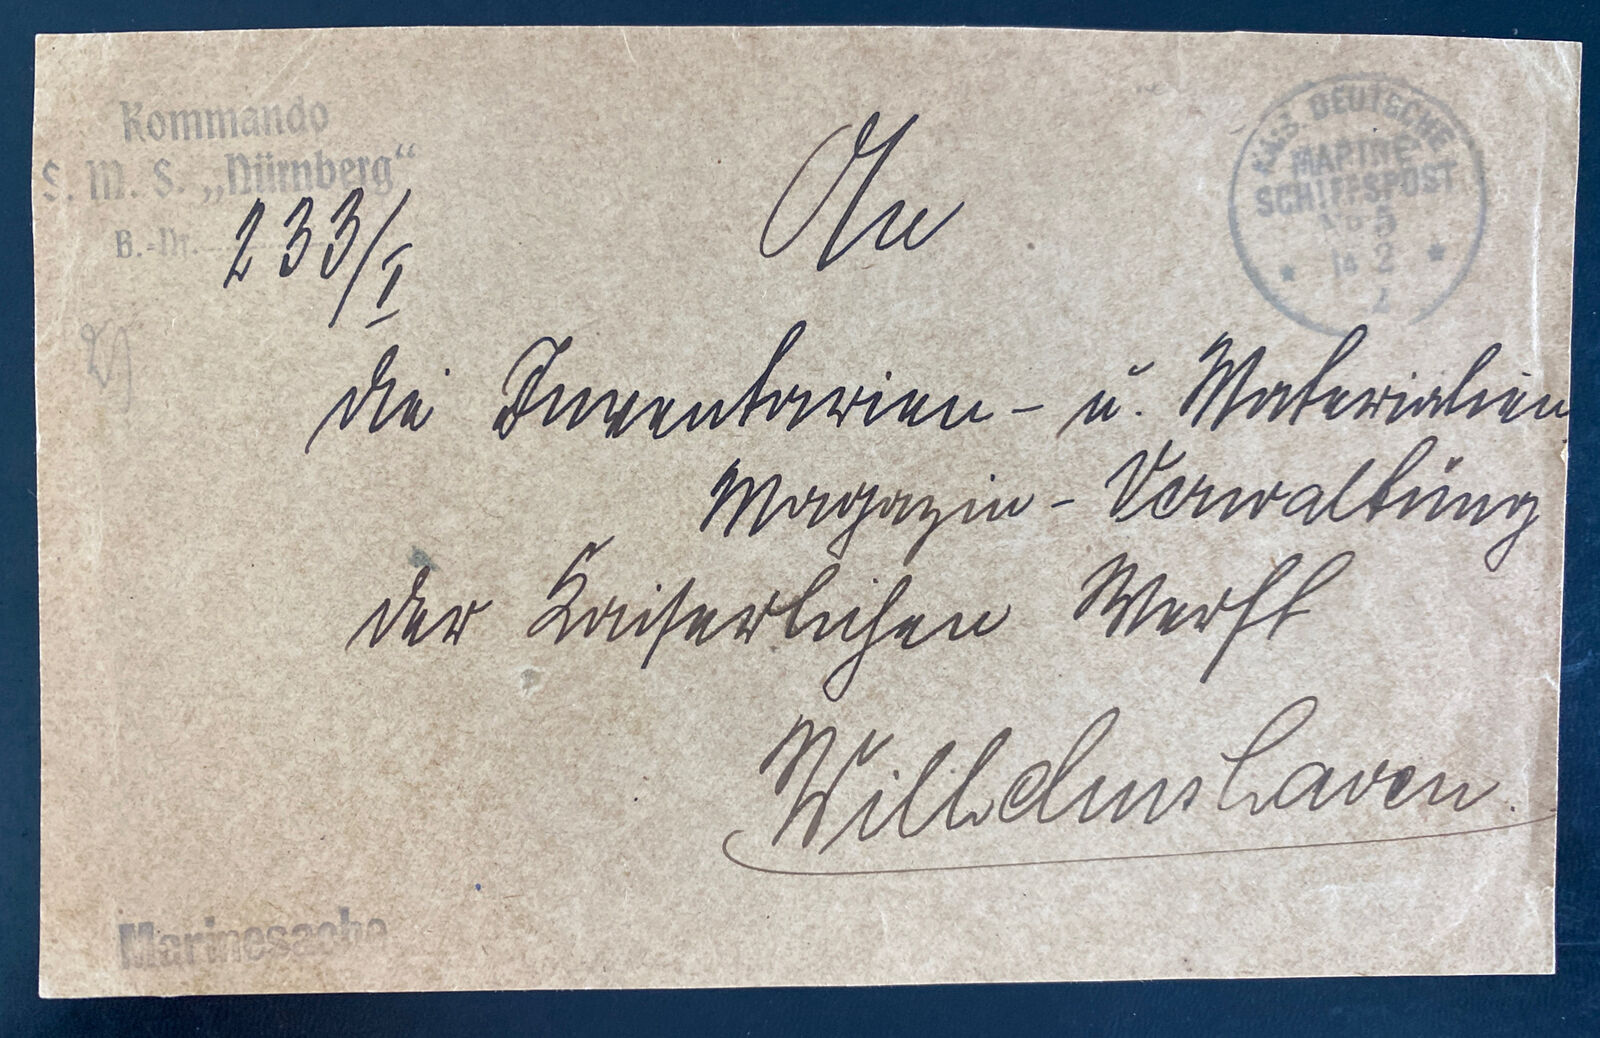 Kommando
S. M. S. „Nürnberg“
B.-Nr. 233/I
KAIS. DEUTSCHE
MARINE-
SCHIFFSPOST
No 5
14 2
An
die Inventarien- u. Materialien
Magazin-Verwaltung
der Kaiserlichen Werft
Wilhelmshaven.
Marinesache